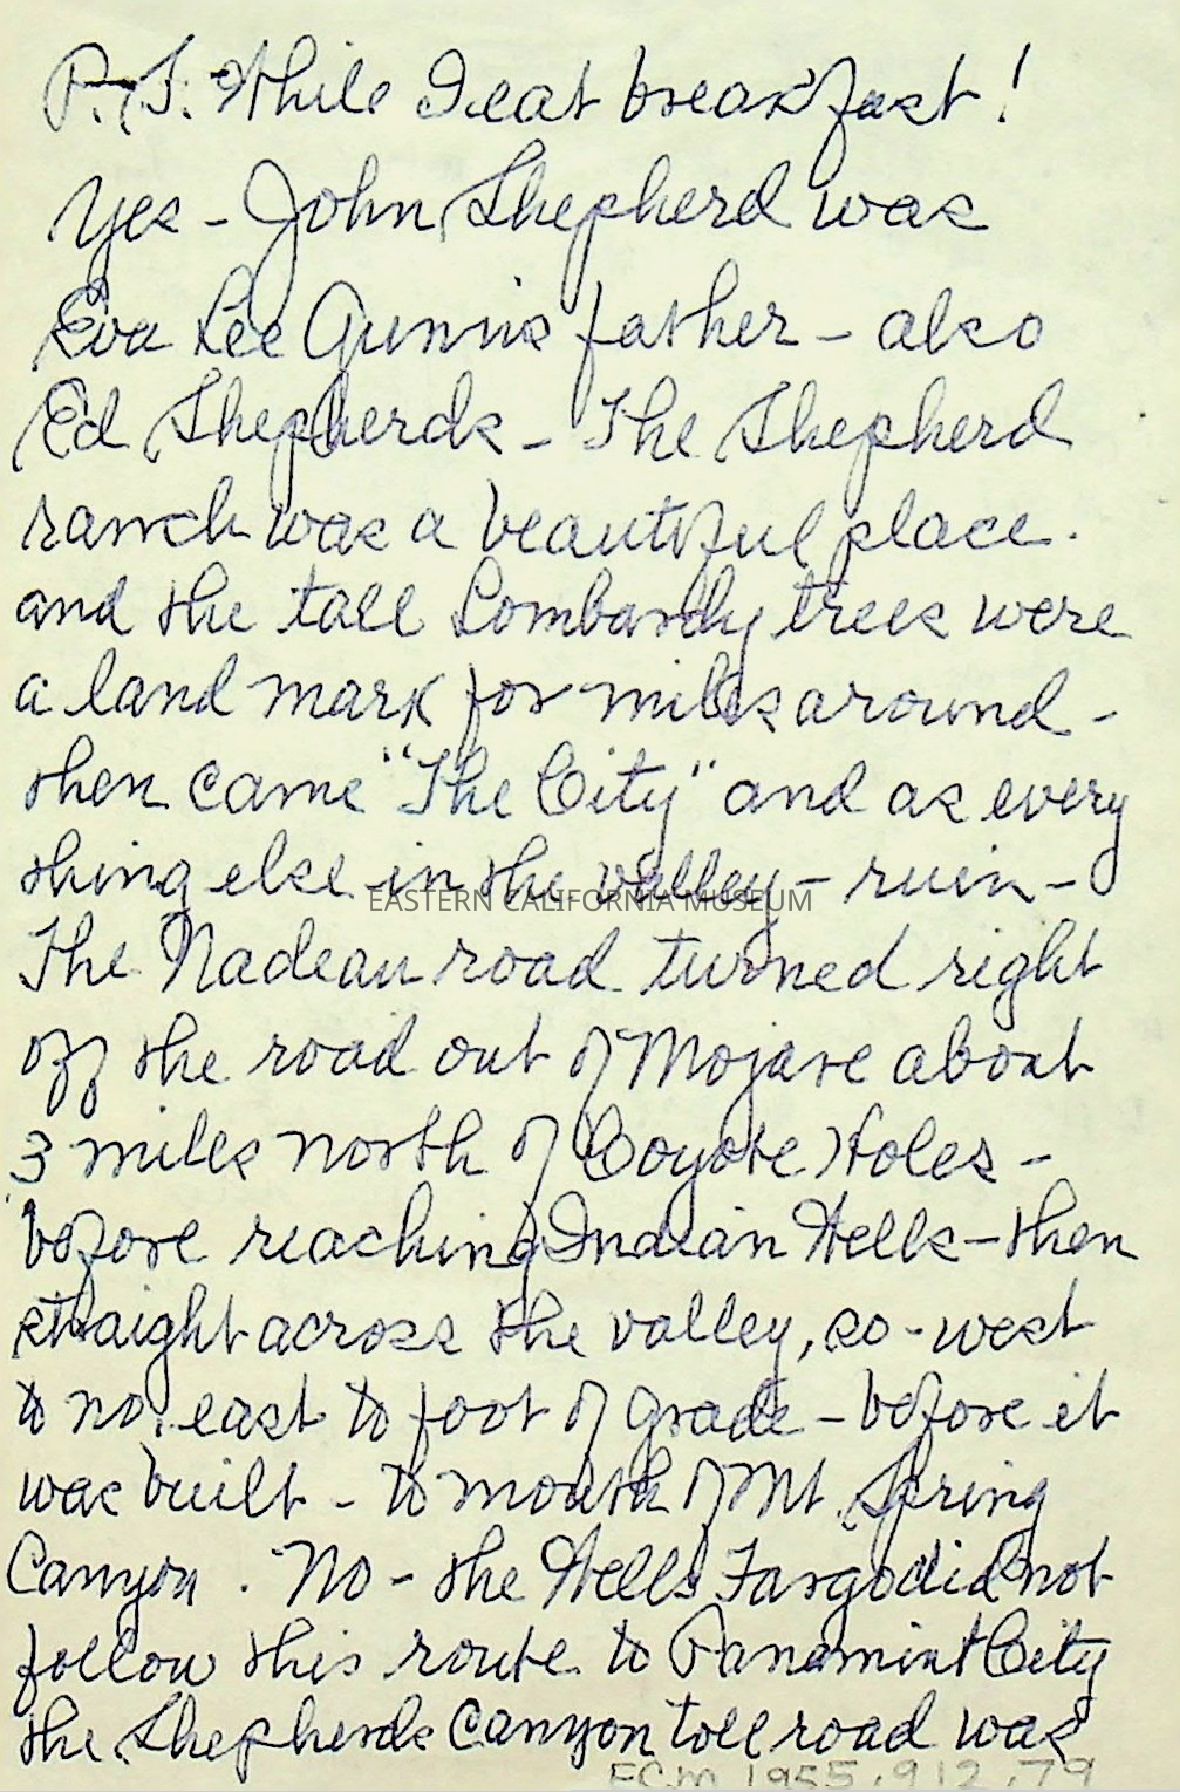 P.S. While I eat breakfast!
Yes - John Shepherd was
Eva Lee Gunn's father - also
Ed Shepherds - The Shepherd
ranch was a beautiful place.
and the tall Lombardy trees were
a land mark for miles around -
then came "The City" and as every
thing else in the valley - ruin -
EASTERN CALIFORNIA MUSEUM
The Nadeau road turned right
off the road out of Mojave about
3 miles north of Coyote Holes -
before reaching Indian Wells - then
straight across the valley, so - west
to no. east to foot of grade - before it
was built - to mouth of Mt. Spring
Canyon. No - the Wells Fargo did not
follow this route to Panamint City
the Shepherds Canyon toll road was
ECM 1955.912.79